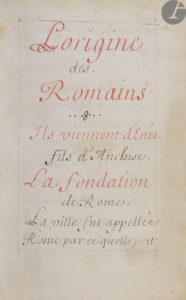 L'origine
des.
Romains
Ils viennent d'Enée
fils d'Anchise.
La fondation
de Rome.
La ville fut appellée
Rome par ce quelle prit